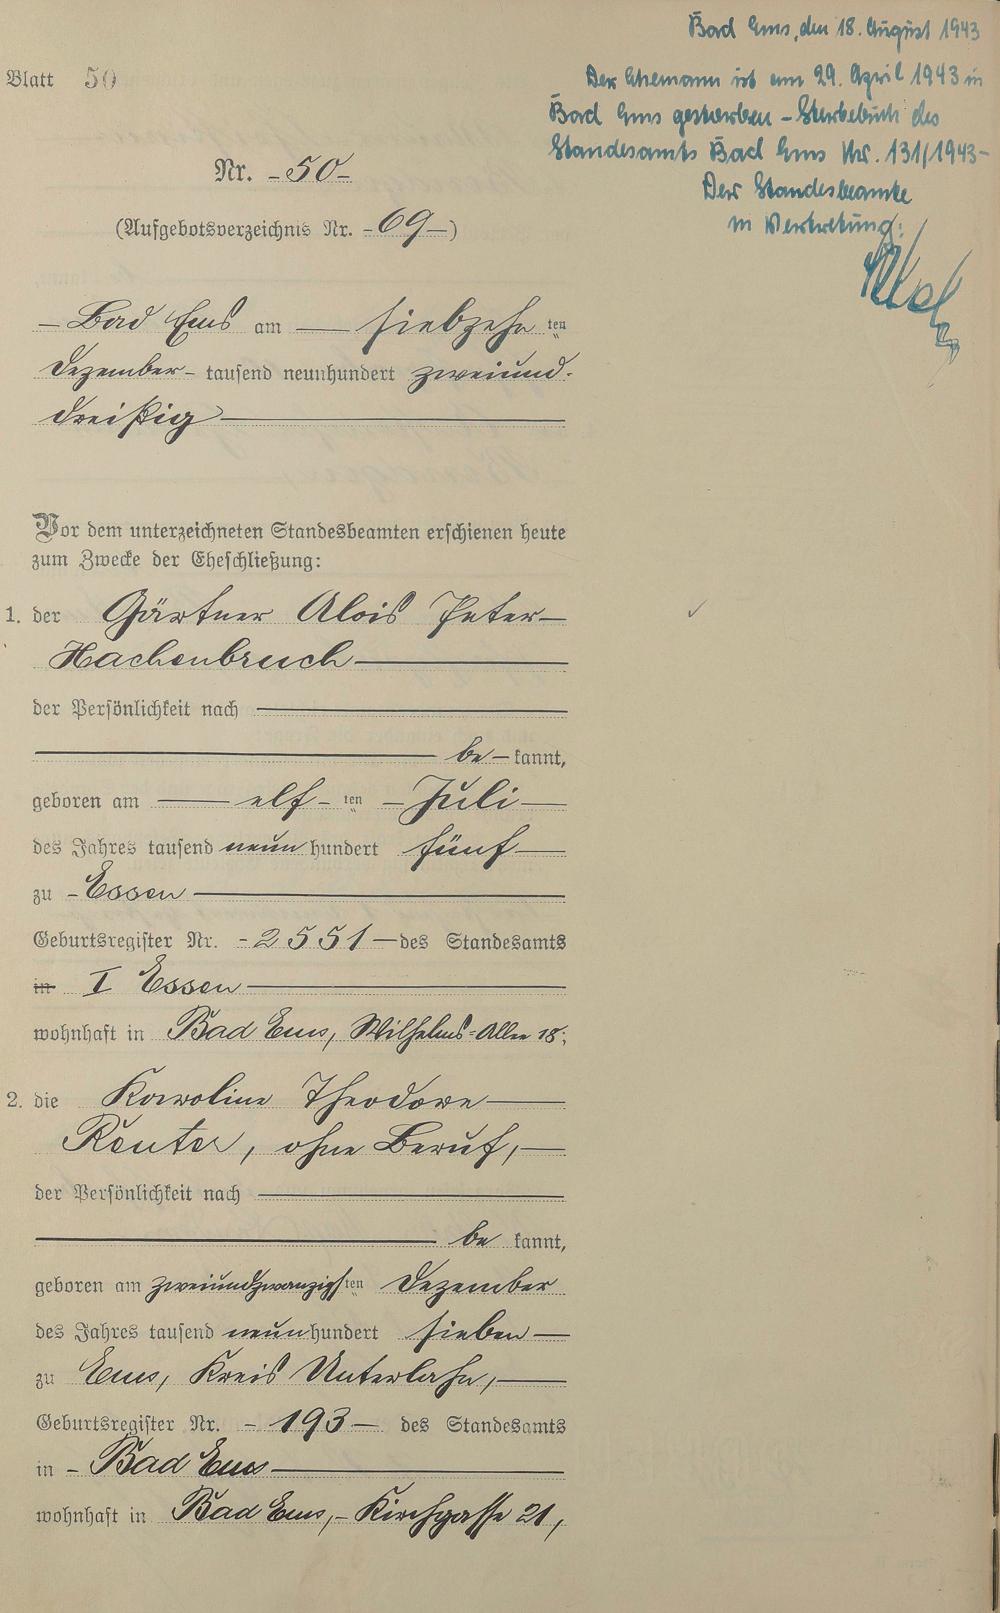 Bad Ems, den 18. August 1943
Der Ehemann ist am 29. April 1943 in
Bad Ems gestorben – Sterbebuch des
Standesamts Bad Ems Nr. 131/1943 –
Der Standesbeamte
in Vertretung:
Blatt 50
Nr. - 50 -
(Aufgebotsverzeichnis Nr. - 69 -)
– Bad Ems am — siebzehn ten
Dezember – tausend neunhundert zweiund-
dreißig —
Vor dem unterzeichneten Standesbeamten erschienen heute
zum Zwecke der Eheschließung:
1. der Gärtner Alois Peter –
Hachenbruch —
der Persönlichkeit nach —
— be – kannt,
geboren am — elf – ten – Juli —
des Jahres tausend neun hundert fünf —
zu – Essen —
Geburtsregister Nr. - 2551 — des Standesamts
in I Essen —
wohnhaft in Bad Ems, Wilhelms-Allee 18;
2. die Karoline Theodore —
Reuter, ohne Beruf, —
der Persönlichkeit nach —
— be kannt,
geboren am zweiundzwanzigsten Dezember
des Jahres tausend neunhundert sieben —
zu Ems, Kreis Unterlahn, —
Geburtsregister Nr. - 193 — des Standesamts
in – Bad Ems —
wohnhaft in Bad Ems, – Kirchgasse 21,